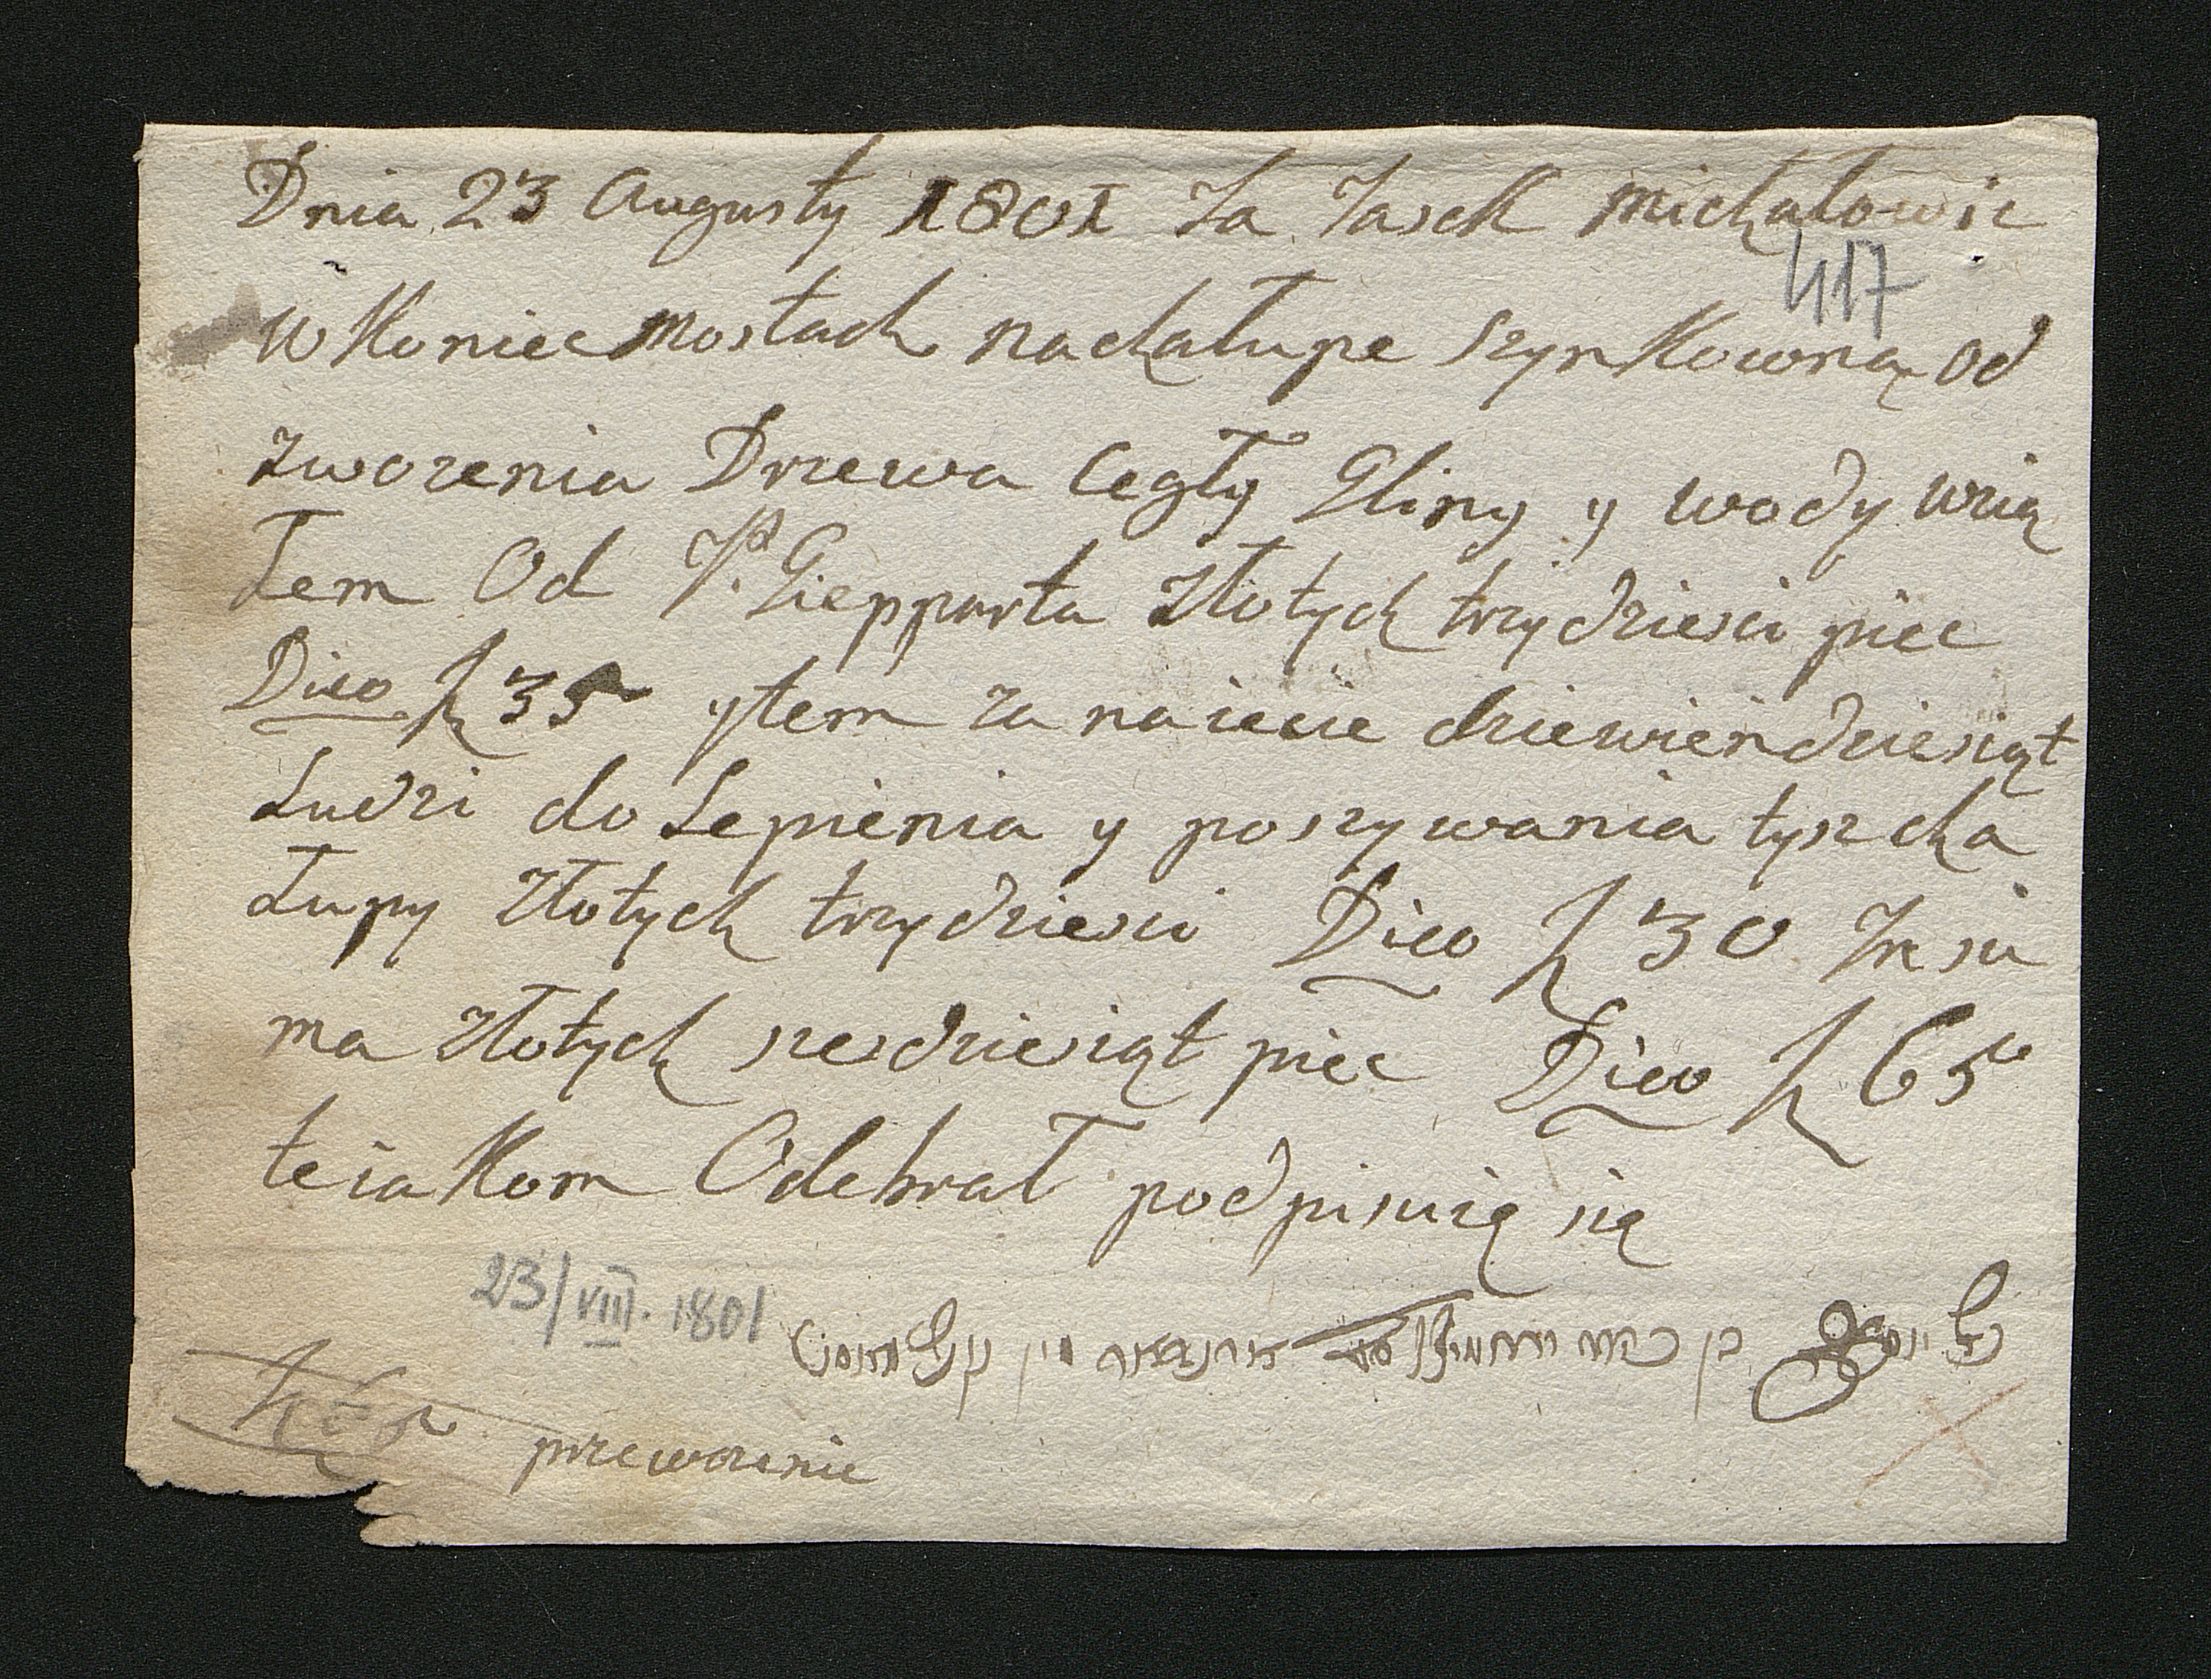 Dnia 23 Augusty 1801 Ja Jasek Michałowic
417
w Koniec Mostach nachałupe szynkowną od
zworenia Drzewa Cegły Gliny y wody wzią
łem Od JP. Giepparta Złotych trzydziesci piec
Dico f 35 ytem za naięcie dziewiendziesiąt
Ludzi do Lepienia y poszywania tyszcha
Łupy Złotych trzydziesci Dico f 30 Jn su
ma Złotych szesdziesiąt piec Dico f 65
teiakom Odebrał podpisuię się
23/VIII. 1801
przeworenie